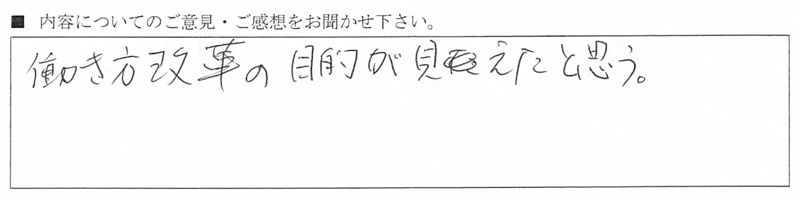 ■ 内容についてのご意見・ご感想をお聞かせ下さい。
働き方改革の目的が見えたと思う。